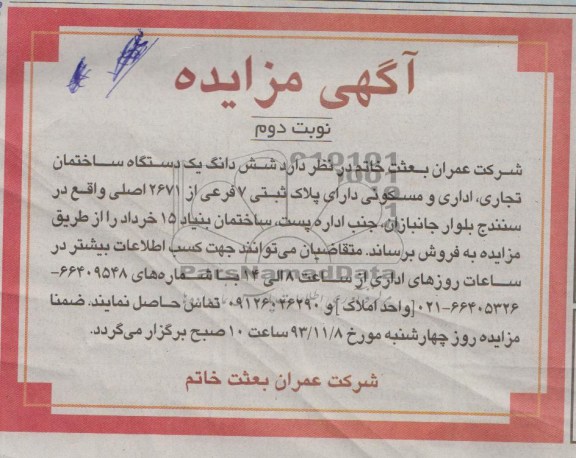 آگهی مزایده
نوبت دوم
شرکت عمران بعثت خاتم در نظر دارد شش دانگ یک دستگاه ساختمان
تجاری، اداری و مسکونی دارای پلاک ثبتی ۷ فرعی از ۲۶۷۱ اصلی واقع در
سنندج بلوار جانبازان، جنب اداره پست، ساختمان بنیاد ۱۵ خرداد را از طریق
مزایده به فروش برساند. متقاضیان می‌توانند جهت کسب اطلاعات بیشتر در
ساعات روزهای اداری از ساعت ۸ الی ۱۴ با شماره‌های ۶۶۴۰۹۵۴۸-
۰۲۱-۶۶۴۰۵۳۲۶ [واحد املاک] و ۰۹۱۲۶۰۲۶۲۹۰ تماس حاصل نمایند. ضمنا
مزایده روز چهارشنبه مورخ ۹۳/۱۱/۸ ساعت ۱۰ صبح برگزار می‌گردد.
شرکت عمران بعثت خاتم
ParsNamadData